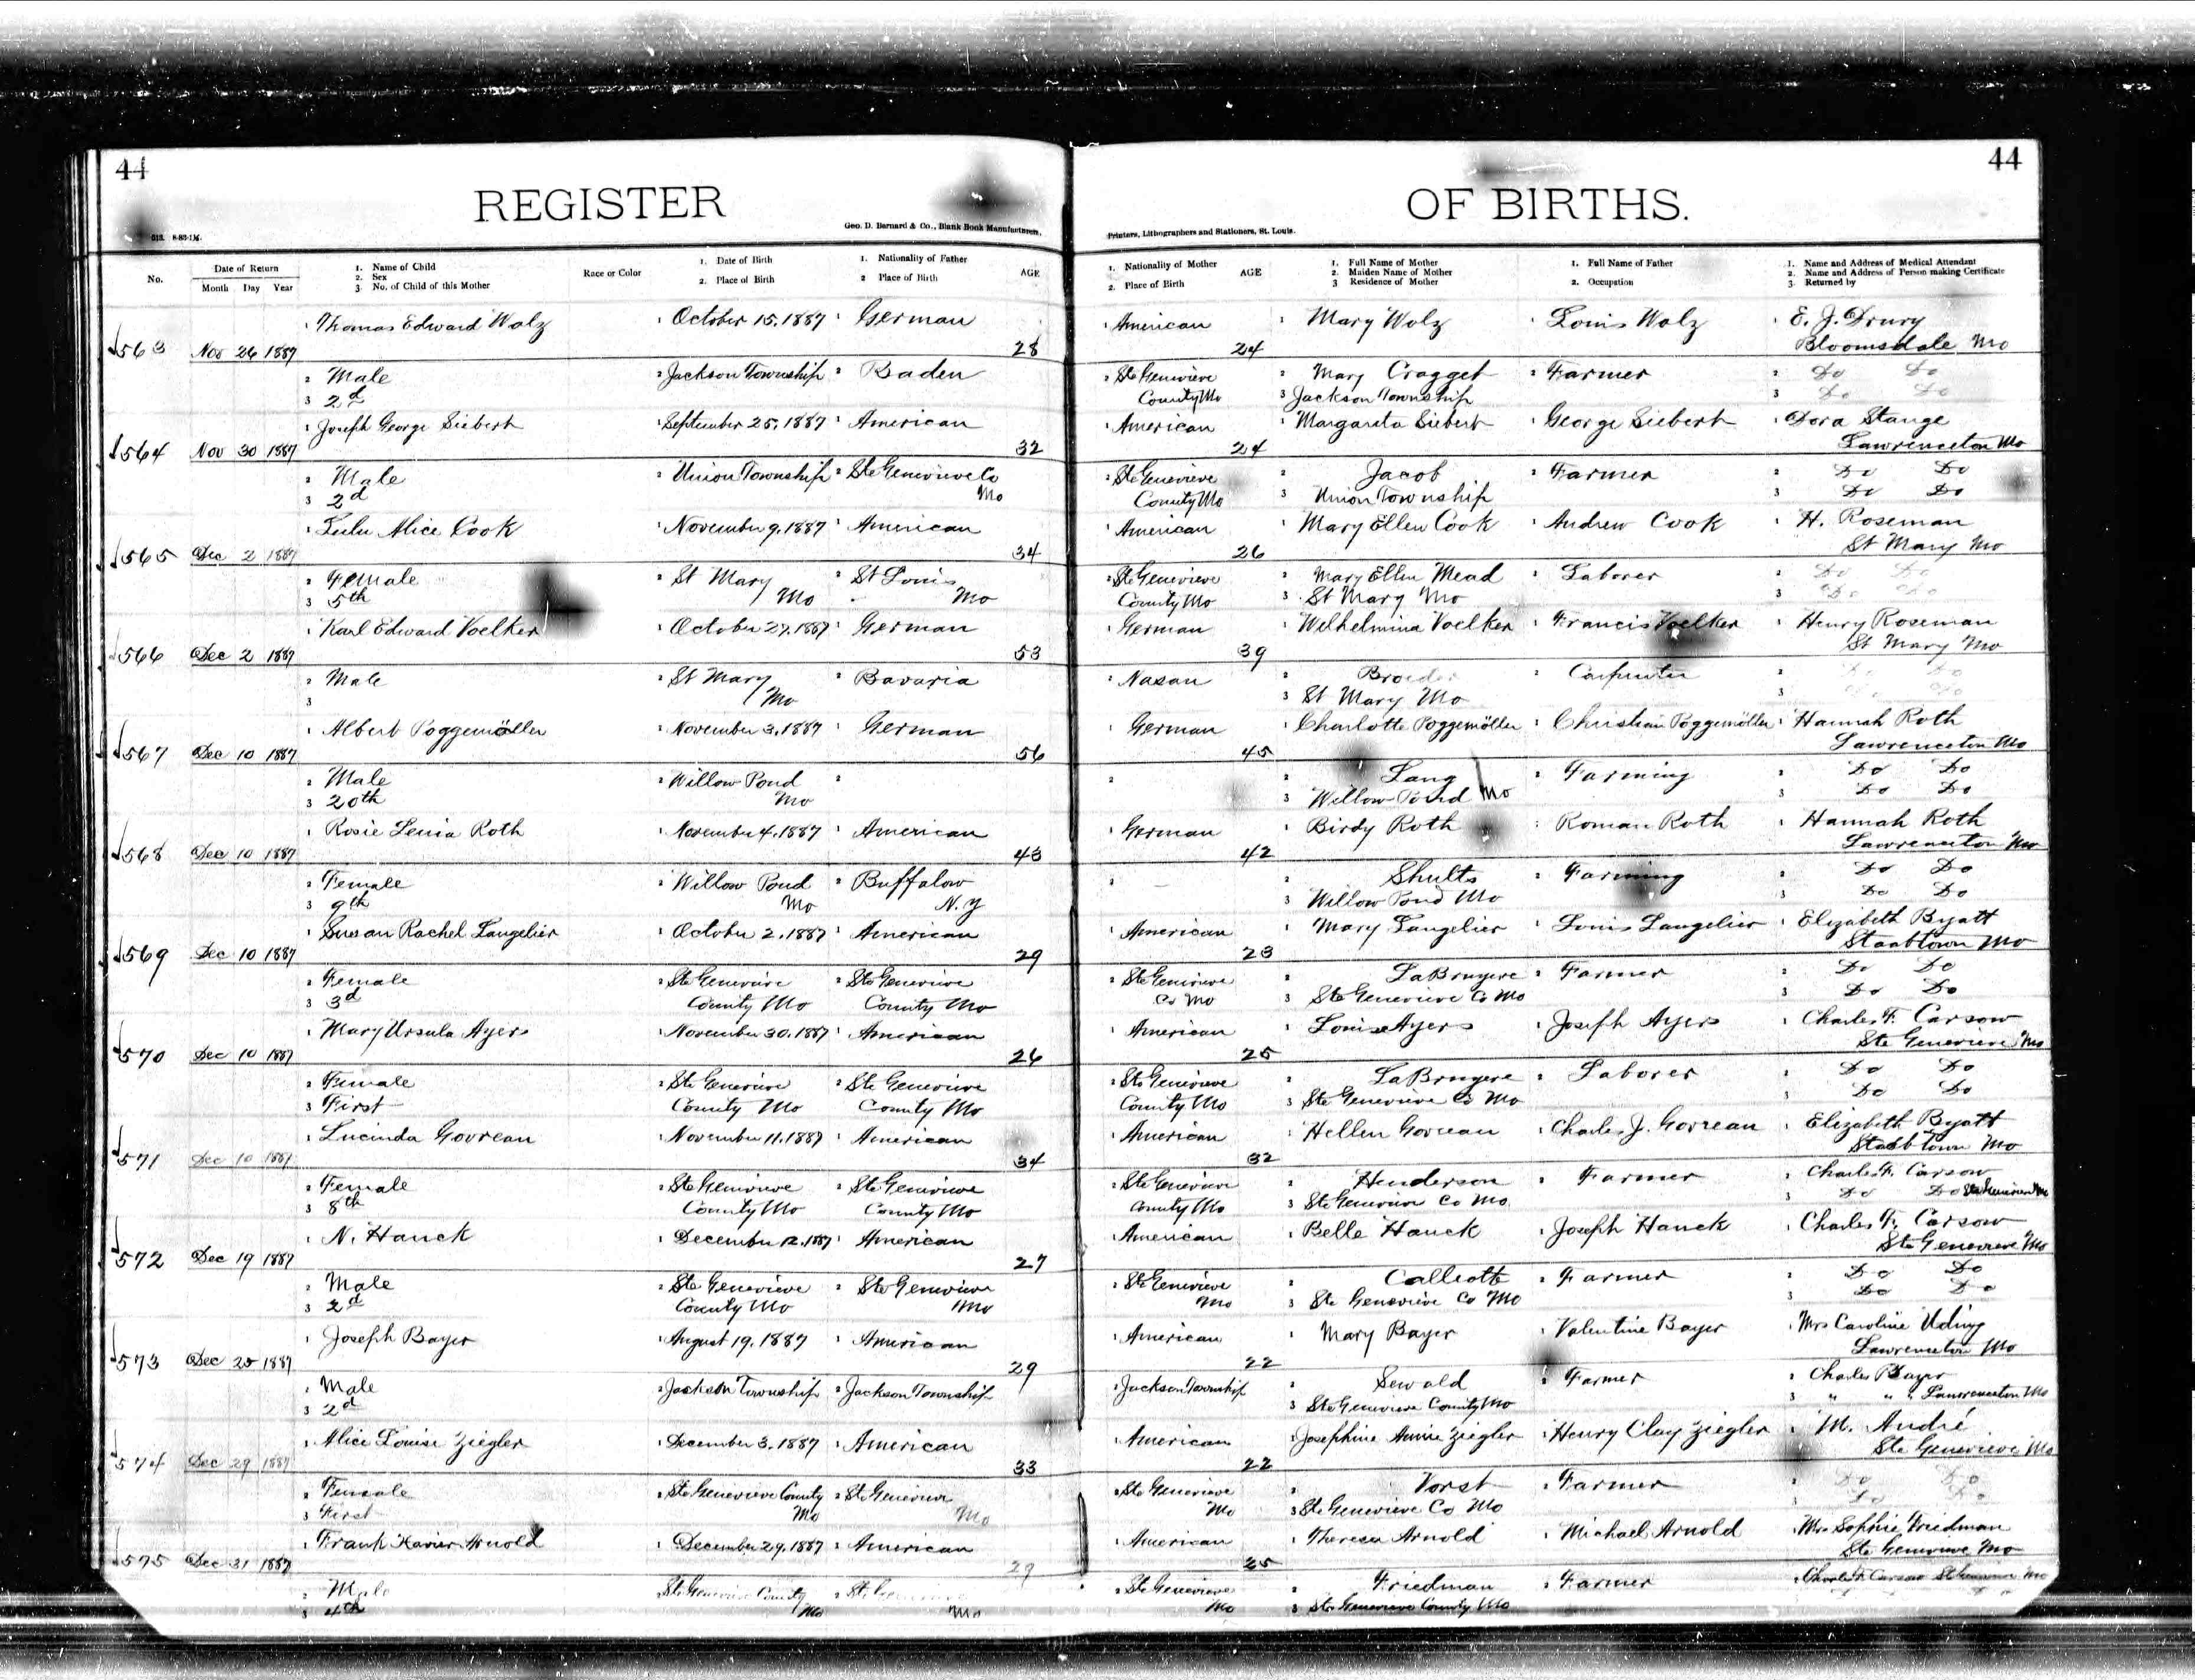 44
44
REGISTER
OF BIRTHS.
Geo. D. Barnard & Co., Blank Book Manufacturers,
Printers, Lithographers and Stationers, St. Louis.
No. Date of Return Month Day Year 1. Name of Child 2. Sex 3. No. of Child of this Mother Race or Color 1. Date of Birth 2. Place of Birth 1. Nationality of Father 2 Place of Birth AGE 1. Nationality of Mother 2. Place of Birth AGE 1. Full Name of Mother 2. Maiden Name of Mother 3 Residence of Mother 1. Full Name of Father 2. Occupation 1. Name and Address of Medical Attendant 2. Name and Address of Person making Certificate 3. Returned by
1 Thomas Edward Wolz 1 October 15, 1887 1 German 1 American 1 Mary Wolz 1 Louis Wolz 1 E. J. Drury
563 Nov 26 1887 28 24 Bloomsdale Mo
2 Male 2 Jackson Township 2 Baden 2 Ste Genevieve 2 Mary Cragget 2 Farmer 2 Do Do
3 2d County Mo 3 Jackson Township 3 Do Do
1 Joseph George Siebert 1 September 25, 1887 1 American 1 American 1 Margareta Siebert 1 George Siebert 1 Dora Stange
564 Nov 30 1887 32 24 Lawrenceton Mo
2 Male 2 Union Township 2 Ste Genevieve Co 2 Ste Genevieve 2 Jacob 2 Farmer 2 Do Do
3 2d Mo County Mo 3 Union Township 3 Do Do
1 Lulu Alice Cook 1 November 9, 1887 1 American 1 American 1 Mary Ellen Cook 1 Andrew Cook 1 H. Roseman
565 Dec 2 1887 34 26 St Mary Mo
2 Female 2 St Mary 2 St Louis 2 Ste Genevieve 2 Mary Ellen Mead 2 Laborer 2 Do Do
3 5th Mo Mo County Mo 3 St Mary Mo 3 Do Do
1 Karl Edward Voelker 1 October 27, 1887 1 German 1 German 1 Wilhelmina Voelker 1 Francis Voelker 1 Henry Roseman
566 Dec 2 1887 53 39 St Mary Mo
2 Male 2 St Mary 2 Bavaria 2 Nasau 2 2 Carpenter 2 Do Do
3 Mo 3 St Mary Mo 3 Do Do
1 Albert Poggemöller 1 November 3, 1887 1 German 1 German 1 Charlotte Poggemöller 1 Christian Poggemöller 1 Hannah Roth
567 Dec 10 1887 56 45 Lawrenceton Mo
2 Male 2 Willow Pond 2 2 2 Lang 2 Farming 2 Do Do
3 20th Mo 3 Willow Pond Mo 3 Do Do
1 Rosie Lenia Roth 1 November 4, 1887 1 American 1 German 1 Birdy Roth 1 Roman Roth 1 Hannah Roth
568 Dec 10 1887 43 42 Lawrenceton Mo
2 Female 2 Willow Pond 2 Buffalow 2 2 Shults 2 Farming 2 Do Do
3 9th Mo N.Y 3 Willow Pond Mo 3 Do Do
1 Susan Rachel Langelier 1 October 2, 1887 1 American 1 American 1 Mary Langelier 1 Louis Langelier 1 Elizabeth Byatt
569 Dec 10 1887 29 23 Staabtown Mo
2 Female 2 Ste Genevieve 2 Ste Genevieve 2 Ste Genevieve 2 LaBruyere 2 Farmer 2 Do Do
3 3d County Mo County Mo Co Mo 3 Ste Genevieve Co Mo 3 Do Do
1 Mary Ursula Ayers 1 November 30, 1887 1 American 1 American 1 Louise Ayers 1 Joseph Ayers 1 Charles F. Carsow
570 Dec 10 1887 26 25 Ste Genevieve Mo
2 Female 2 Ste Genevieve 2 Ste Genevieve 2 Ste Genevieve 2 LaBruyere 2 Laborer 2 Do Do
3 First County Mo County Mo County Mo 3 Ste Genevieve Co Mo 3 Do Do
1 Lucinda Govreau 1 November 11, 1887 1 American 1 American 1 Hellen Govreau 1 Charles J. Govreau 1 Elizabeth Byatt
571 Dec 10 1887 34 32 Staabtown Mo
2 Female 2 Ste Genevieve 2 Ste Genevieve 2 Ste Genevieve 2 Henderson 2 Farmer 2 Charles F. Carsow
3 8th County Mo County Mo County Mo 3 Ste Genevieve Co Mo 3 Do Do Ste Genevieve Mo
1 N. Hauck 1 December 12, 1887 1 American 1 American 1 Belle Hauck 1 Joseph Hauck 1 Charles F. Carsow
572 Dec 19 1887 27 Ste Genevieve Mo
2 Male 2 Ste Genevieve 2 Ste Genevieve 2 Ste Genevieve 2 Calliott 2 Farmer 2 Do Do
3 2d County Mo Mo Mo 3 Ste Genevieve Co Mo 3 Do Do
1 Joseph Bayer 1 August 19, 1887 1 American 1 American 1 Mary Bayer 1 Valentine Bayer 1 Mrs Caroline Uding
573 Dec 25 1887 29 22 Lawrenceton Mo
2 Male 2 Jackson Township 2 Jackson Township 2 Jackson Township 2 Sewald 2 Farmer 2 Charles Bayer
3 2d 3 Ste Genevieve County Mo 3 " " " Lawrenceton Mo
1 Alice Louise Ziegler 1 December 3, 1887 1 American 1 American 1 Josephine Annie Ziegler 1 Henry Clay Ziegler 1 M. André
574 Dec 29 1887 33 22 Ste Genevieve Mo
2 Female 2 Ste Genevieve County 2 Ste Genevieve 2 Ste Genevieve 2 Vorst 2 Farmer 2 Do Do
3 First Mo Mo Mo 3 Ste Genevieve Co Mo 3 Do Do
1 Frank Xavier Arnold 1 December 29, 1887 1 American 1 American 1 Theresa Arnold 1 Michael Arnold 1 Mrs Sophie Friedman
575 Dec 31 1887 29 25 Ste Genevieve Mo
2 Male 2 Ste Genevieve County 2 Ste Genevieve 2 Ste Genevieve 2 Friedman 2 Farmer 2 Charles F. Carsow Ste Genevieve Mo
3 4th Mo Mo Mo 3 Ste Genevieve County Mo